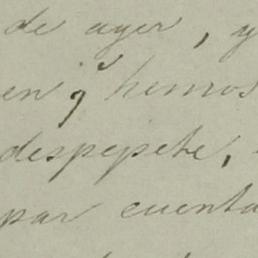 de ayer, y
en q.e hemos
despepete,
par cuenta